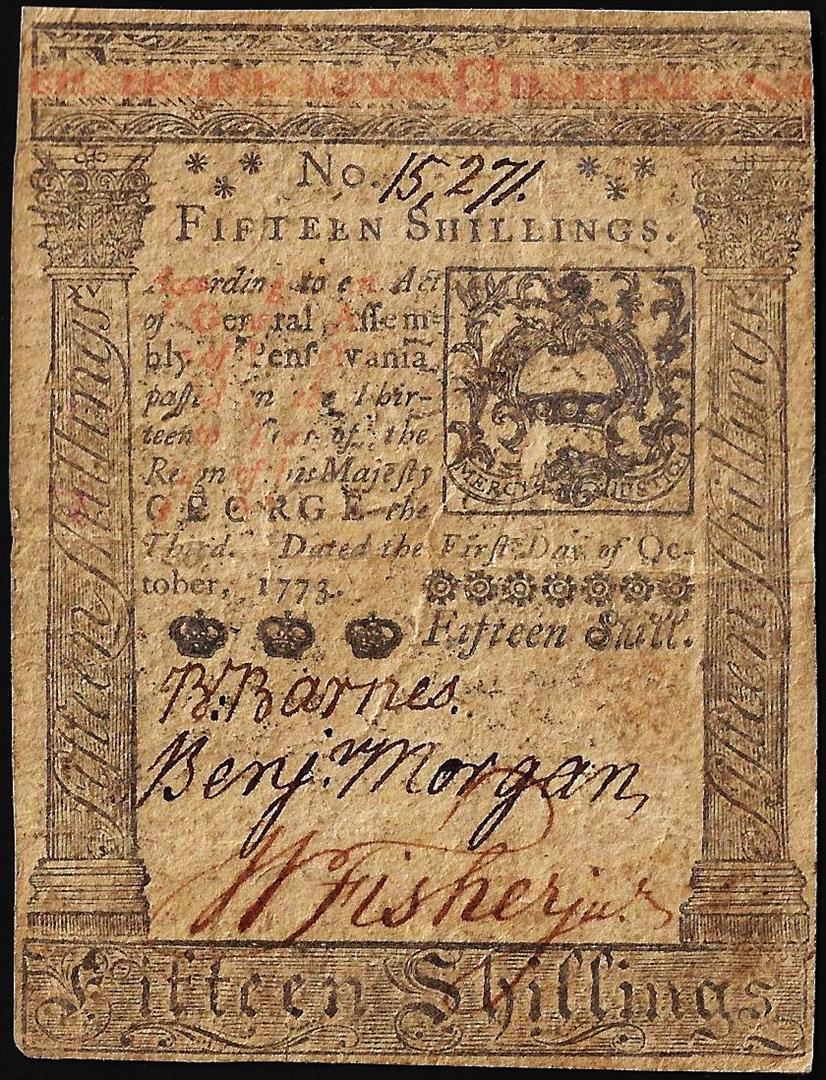 No. 15,271.
FIFTEEN SHILLINGS.
According to an Act
of General Assem-
bly of Pensylvania
passed in the Thir-
teenth Year of the
Reign of his Majesty
GEORGE the
Third. Dated the First Day of Oc-
tober, 1773.
MERCY JUSTICE
Fifteen Shill.
B. Barnes.
Benjn Morgan,
W Fisher junr
Fifteen Shillings
Fifteen Shillings
Fifteen Shillings